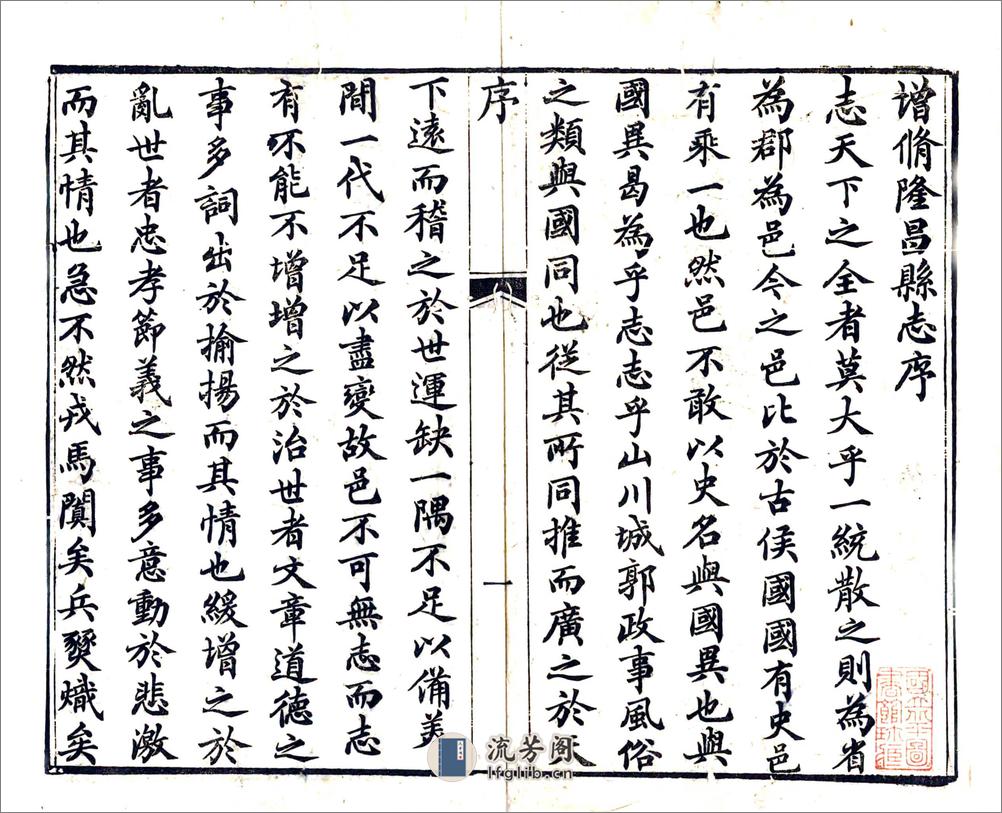 增脩隆昌縣志序
志天下之全者莫大乎一統散之則為省
為郡為邑今之邑比於古侯國國有史邑
有乘一也然邑不敢以史名與國異也與
國異曷為乎志志乎山川城郭政事風俗
之類與國同也從其所同推而廣之於天
序
一
下遠而稽之於世運缺一隅不足以備美
間一代不足以盡變故邑不可無志而志
有不能不增增之於治世者文章道德之
事多詞出於揄揚而其情也緩增之於
亂世者忠孝節義之事多意動於悲激
而其情也急不然戎馬闐矣兵燹熾矣
流芳阁
lfglib.cn